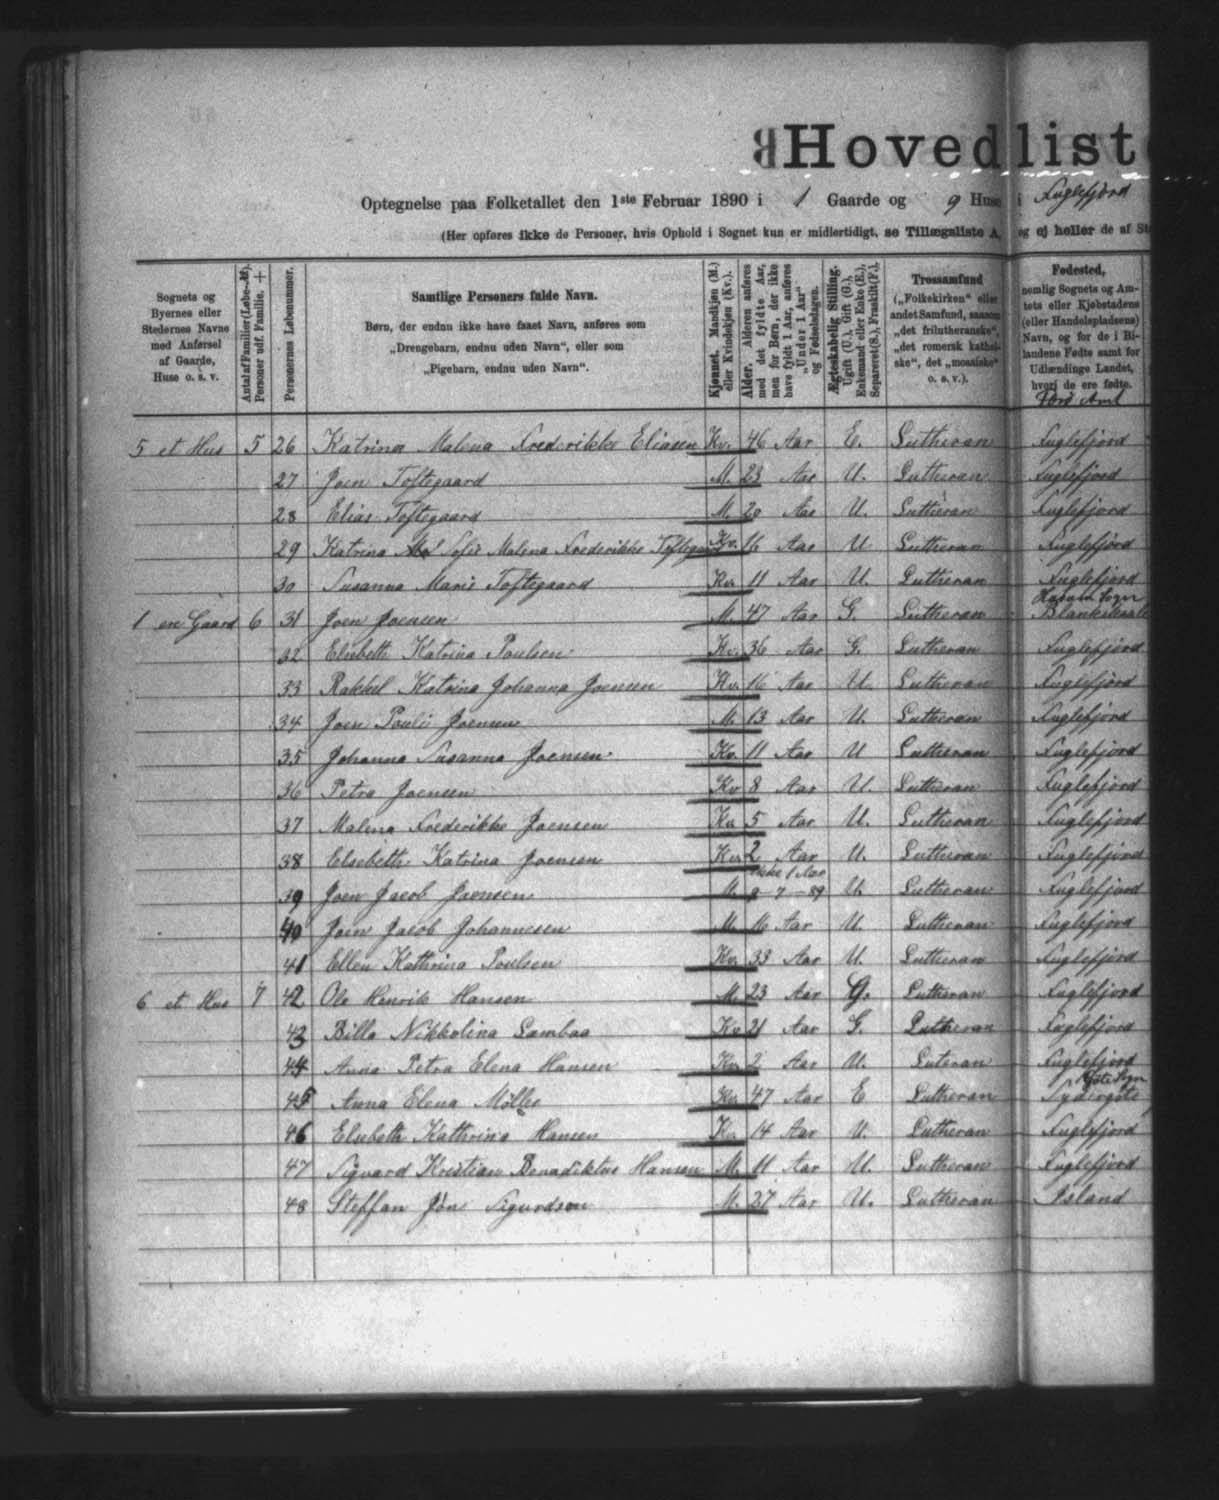 Hovedliste
Optegnelse paa Folketallet den 1ste Februar 1890 i 1 Gaarde og 9 Huse i Fuglefjord
(Her opføres ikke de Personer, hvis Ophold i Sognet kun er midlertidigt, se Tillægsliste A, og ej heller de af St
Sognets og Byernes eller Stedernes Navne med Anførsel af Gaarde, Huse o. s. v.
Antal af Familier (Løbe-No). Personer udf. Familie. +
Personernes Løbenummer.
Samtlige Personers fulde Navn.
Børn, der endnu ikke have faaet Navn, anføres som
„Drengebarn, endnu uden Navn", eller som
„Pigebarn, endnu uden Navn".
Kjønnet. Mandkjøn (M.) eller Kvindekjøn (Kv.).
Alder. Alderen anføres med det fyldte Aar, men for Børn, der ikke have fyldt 1 Aar, anføres „Under 1 Aar" og Fødselsdagen.
Ægteskabelig Stilling. Ugift (U.), Gift (G.), Enkemand eller Enke (E.), Separeret (S.), Fraskilt (F.).
Trossamfund („Folkekirken" eller andet Samfund, saasom „det frilutheranske", „det romersk katholske", det „mosaiske" o. s. v.).
Fødested, nemlig Sognets og Amtets eller Kjøbstadens (eller Handelspladsens) Navn, og for de i Bilandene Fødte samt for Udlændinge Landet, hvori de ere fødte.
Færø Amt
5 et Hus 5 26 Katrina Malena Frederikke Eliasen Kv. 46 Aar E. Lutheran Fuglefjord
27 Joen Toftegaard M. 23 Aar U. Lutheran Fuglefjord
28 Elias Toftegaard M. 20 Aar U. Lutheran Fuglefjord
29 Katrina Sofie Malena Frederikke Toftegaard Kv. 16 Aar U Lutheran Fuglefjord
30 Susanna Marie Toftegaard Kv. 11 Aar U. Lutheran Fuglefjord
1 en Gaard 6 31 Joen Joensen M. 47 Aar G. Lutheran Sogn
32 Elsebeth Katrina Poulsen Kv. 36 Aar G. Lutheran Fuglefjord
33 Rakkel Katrina Johanna Joensen Kv. 16 Aar U Lutheran Fuglefjord
34 Joen Pauli Joensen M. 13 Aar U. Lutheran Fuglefjord
35 Johanna Susanna Joensen Kv. 11 Aar U Lutheran Fuglefjord
36 Petra Joensen Kv 8 Aar U. Lutheran Fuglefjord
37 Malena Frederikke Joensen Kv 5 Aar U. Lutheran Fuglefjord
38 Elsebeth Katrina Joensen Kv. 2 Aar U. Lutheran Fuglefjord
39 Joen Jacob Joensen M. ikke 1 Aar 9-7-89 U. Lutheran Fuglefjord
40 Joen Jacob Johannesen M. 16 Aar U. Lutheran Fuglefjord
41 Ellen Kathrina Poulsen Kv. 33 Aar U. Lutheran Fuglefjord
6 et Hus 7 42 Ole Henrik Hansen M. 23 Aar G. Lutheran Fuglefjord
43 Billa Nikkolina Lambaa Kv 21 Aar G. Lutheran Fuglefjord
44 Anna Petra Elena Hansen Kv. 2 Aar U. Luteran Fuglefjord
45 Anna Elena Kv. 47 Aar E Lutheran
46 Elsebeth Kathrina Hansen Kv. 14 Aar U. Lutheran Fuglefjord
47 Sigvard Kristian Benadiktus Hansen M. 11 Aar U. Lutheran Fuglefjord
48 Steffan Jón Sigurdson M. 27 Aar U. Lutheran Island